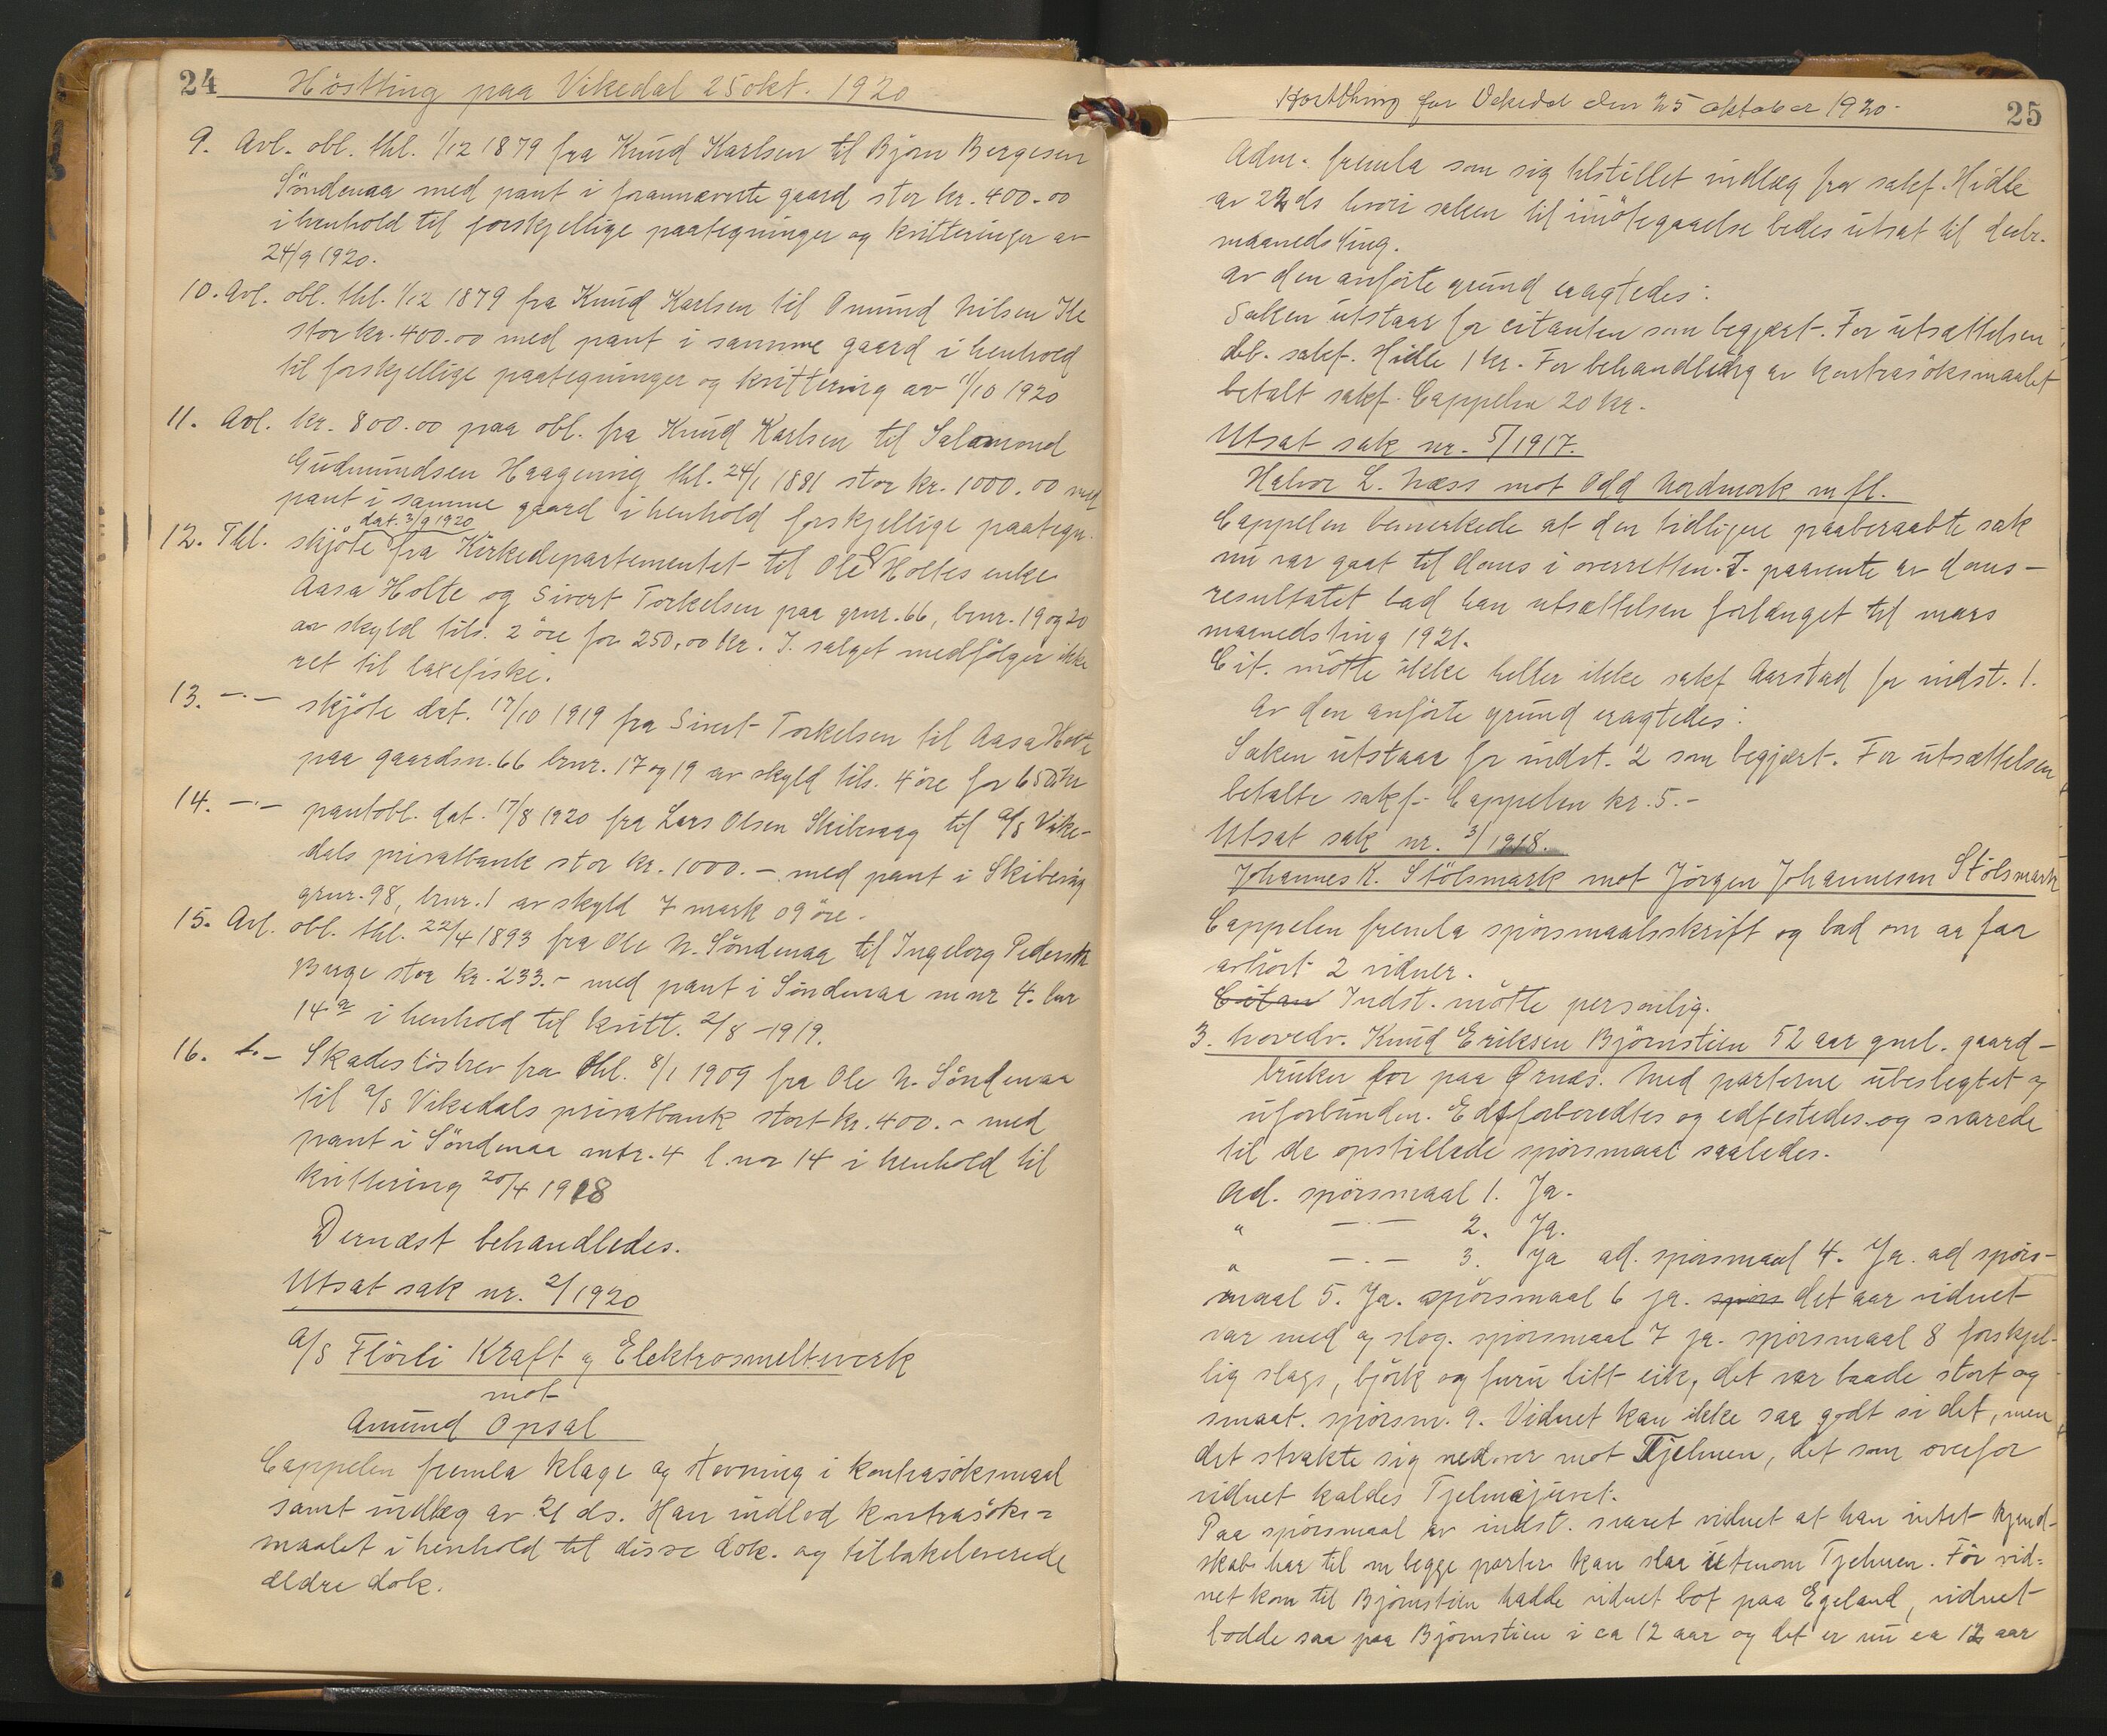 24
Høstting paa Vikedal 25 okt. 1920
9. Avl. obl. thl. 1/12 1879 fra Knud Karlsen til Bjørn Børgesen
Søndenaa med pant i forannævnte gaard stor kr. 400.00
i henhold til forskjellige paategninger og kvitteringer av
24/9 1920.
10. Avl. obl. thl. 1/12 1879 fra Knud Karlsen til Omund Nilsen
stor kr. 400.00 med pant i samme gaard i henhold
til forskjellige paategninger og kvittering av 11/10 1920
11. Avl. kr. 800.00 paa obl. fra Knud Karlsen til Salamond
Gudmundsen Haagenvig thl. 24/1 1881 stor kr. 1000.00 med
pant i samme gaard i henhold forskjellige paategn.
dat. 3/9 1920
12. Thl. skjøte fra Kirkedepartementet til Ole Holtes enke
Aasa Holte og Sivert Torkelsen paa grnr. 66, brnr. 19 og 20
av skyld tils. 2 øre for 250,00 kr. I salget medfølger ikke
ret til laxefiske.
13. -·- skjøte dat. 17/10 1919 fra Sivert Torkelsen til Aasa Holte
paa gaardsn. 66 brnr. 17 og 19 av skyld tils. 4 øre for 650 kr
14. -·- pantobl. dat. 17/8 1920 fra Lars Olsen Skibevaag til a/s Vike-
dals privatbank stor kr. 1000.- med pant i Skibevig
grnr. 98, brnr. 1 av skyld 7 mark 09 øre.
15. Avl. obl. thl. 22/4 1893 fra Ole N. Søndenaa til Ingeborg Pedersdtr
Berge stor kr. 233.- med pant i Søndenaa mnr 4. lnr
14a i henhold til kvitt. 2/8 -1919.
16. -·- Skadesløsbrev fra thl. 8/1 1909 fra Ole N. Søndenaa
til a/s Vikedals privatbank stort kr. 400.- med
pant i Søndenaa mtr. 4 l. nor 14 i henhold til
kvittering 20/4 1918
Dernæst behandledes.
Utsat sak nr. 2/1920
a/s Flörli Kraft og Elektrosmelteverk
mot
Amund Opsal
Cappelen fremla klage og stevning i kontrasøksmaal
samt indlæg av 21 ds. Han indlod kontrasøks=
maalet i henhold til disse dok. og tilbakeleverede
ældre dok.
Høstthing for Vikedal den 25 oktober 1920.
25
Adm. fremla som sig tilstillet indlæg fra sakf. Hidle
av 22 ds hvori saken til imøtegaaelse bedes utsat til decbr.
maanedsting.
Av den anførte grund eragtedes:
Saken utstaar for citanten som begjært. For utsættelsen
bet. sakf. Hidle 1 kr. For behandling av kontrasøksmaalet
betalt sakf. Cappelen 20 kr.
Utsat sak nr. 5/1917.
Halvor L. Næss mot Odd Nordmork m fl.
Cappelen bemerkede at den tidligere paaberaabte sak
nu var gaat til doms i overretten. I paavente av doms-
resultatet bad han utsættelsen forlænget til mars
maanedsting 1921.
Cit. møtte ikke heller ikke sakf Aarstad for indst. 1.
Av den anførte grund eragtedes:
Saken utstaar for indst. 2 som begjært. For utsættelsen
betalte sakf. Cappelen kr. 5.-
Utsat sak nr. 3/1918.
Johannes K. Stölsmark mot Jörgen Johannesen Stölsmark
Cappelen fremla spörsmaalsskrift og bad om aa faa
avhört 2 vidner.
Citan Indst. møtte personlig.
3. hovedv. Knud Eriksen Björnstien 52 aar gml. gaard-
bruker bor paa Ørnes. Med parterne ubeslegtet og
uforbunden. Edsforberedtes og edfestedes og svarede
til de opstillede spörsmaal saaledes.
Ad. spörsmaal 1. Ja.
" -·- 2. Ja.
" -·- 3. Ja ad. spörsmaal 4. Ja. ad spörs-
maal 5. Ja. spörsmaal 6 ja. spörs det aar vidnet
var med og slog. spörsmaal 7 ja. spörsmaal 8 forskjel-
lig slags, björk og furu litt eik, det var baade stort og
smaat. spörsm. 9. Vidnet kan ikke saa godt si det, men
det strakte sig nedover mot Tjelmen, det som ovenfor
vidnet kaldes Tjelmejuvet.
Paa spörsmaal av indst. svaret vidnet at han intet kjend-
skab har til om begge parter kan slaa utenom Tjelmen. För vid=
net kom til Björnstien hadde vidnet bot paa Egeland, vidnet
bodde saa paa Björnstien i ca 12 aar og det er nu ca 12 aar